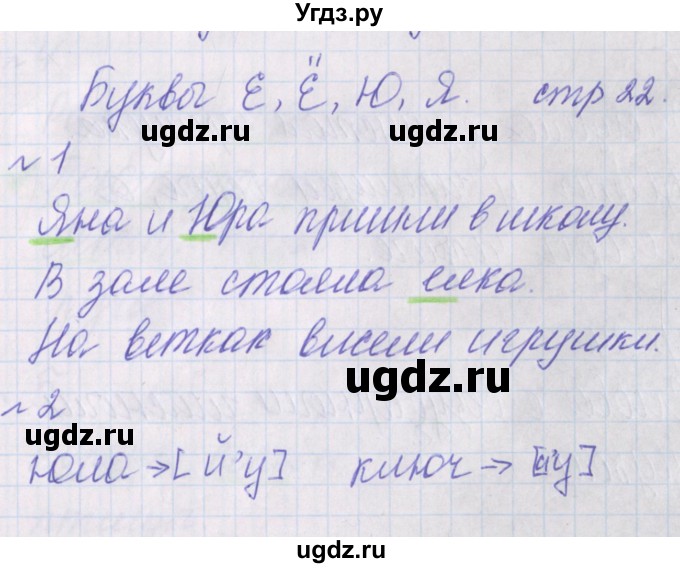 Угдз.ру
Буквы Е, Ё, Ю, Я. стр 22.
ugdz.ru ugdz.ru
№ 1
Яна и Юра пришли в школу.
ugdz.ru ugdz.ru
В зале стояла елка.
На ветках висели игрушки.
ugdz.ru
№ 2
ugdz.ru
юла → [й'у] ключ → ['у]
ugdz.ru ugdz.ru
ugdz.ru